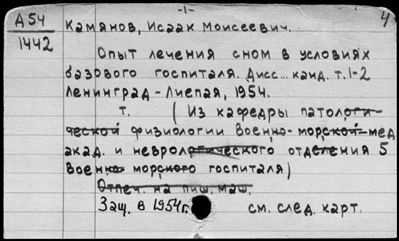 -1-
4
А54
1442
Камянов, Исаак Моисеевич.
Опыт лечения сном в условиях
базового госпиталя. Дисс... канд. т.1-2
Ленинград - Лиепая, 1954.
т. (Из кафедры патологи-
ческой физиологии Военно-морской мед
акад. и неврологического отделения 5
Военно морского госпиталя)
Отпеч. на пиш. маш.
Защ. в 1954г.
см. след. карт.